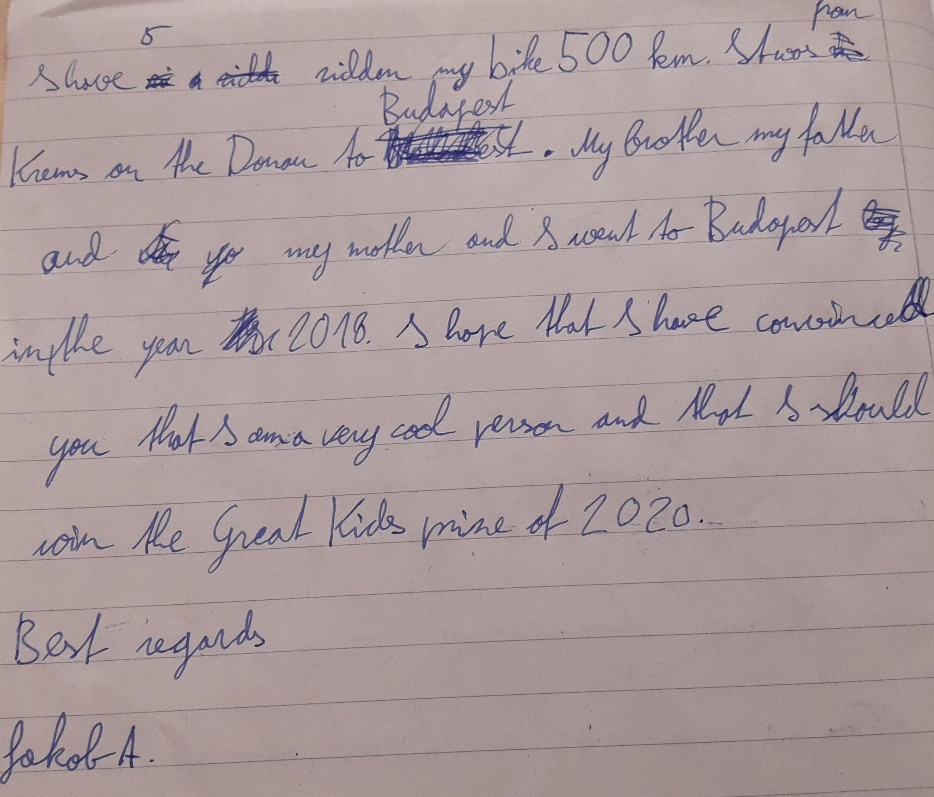 5
from
I have a ridden my bike 500 km. It was
Budapest
Krems on the Donau to . My brother my father
and yo my mother and I went to Budapest
in the year 2018. I hope that I have convinced
you that I am a very cool person and that I should
win the Great Kids prize of 2020.
Best regards
Jakob A.